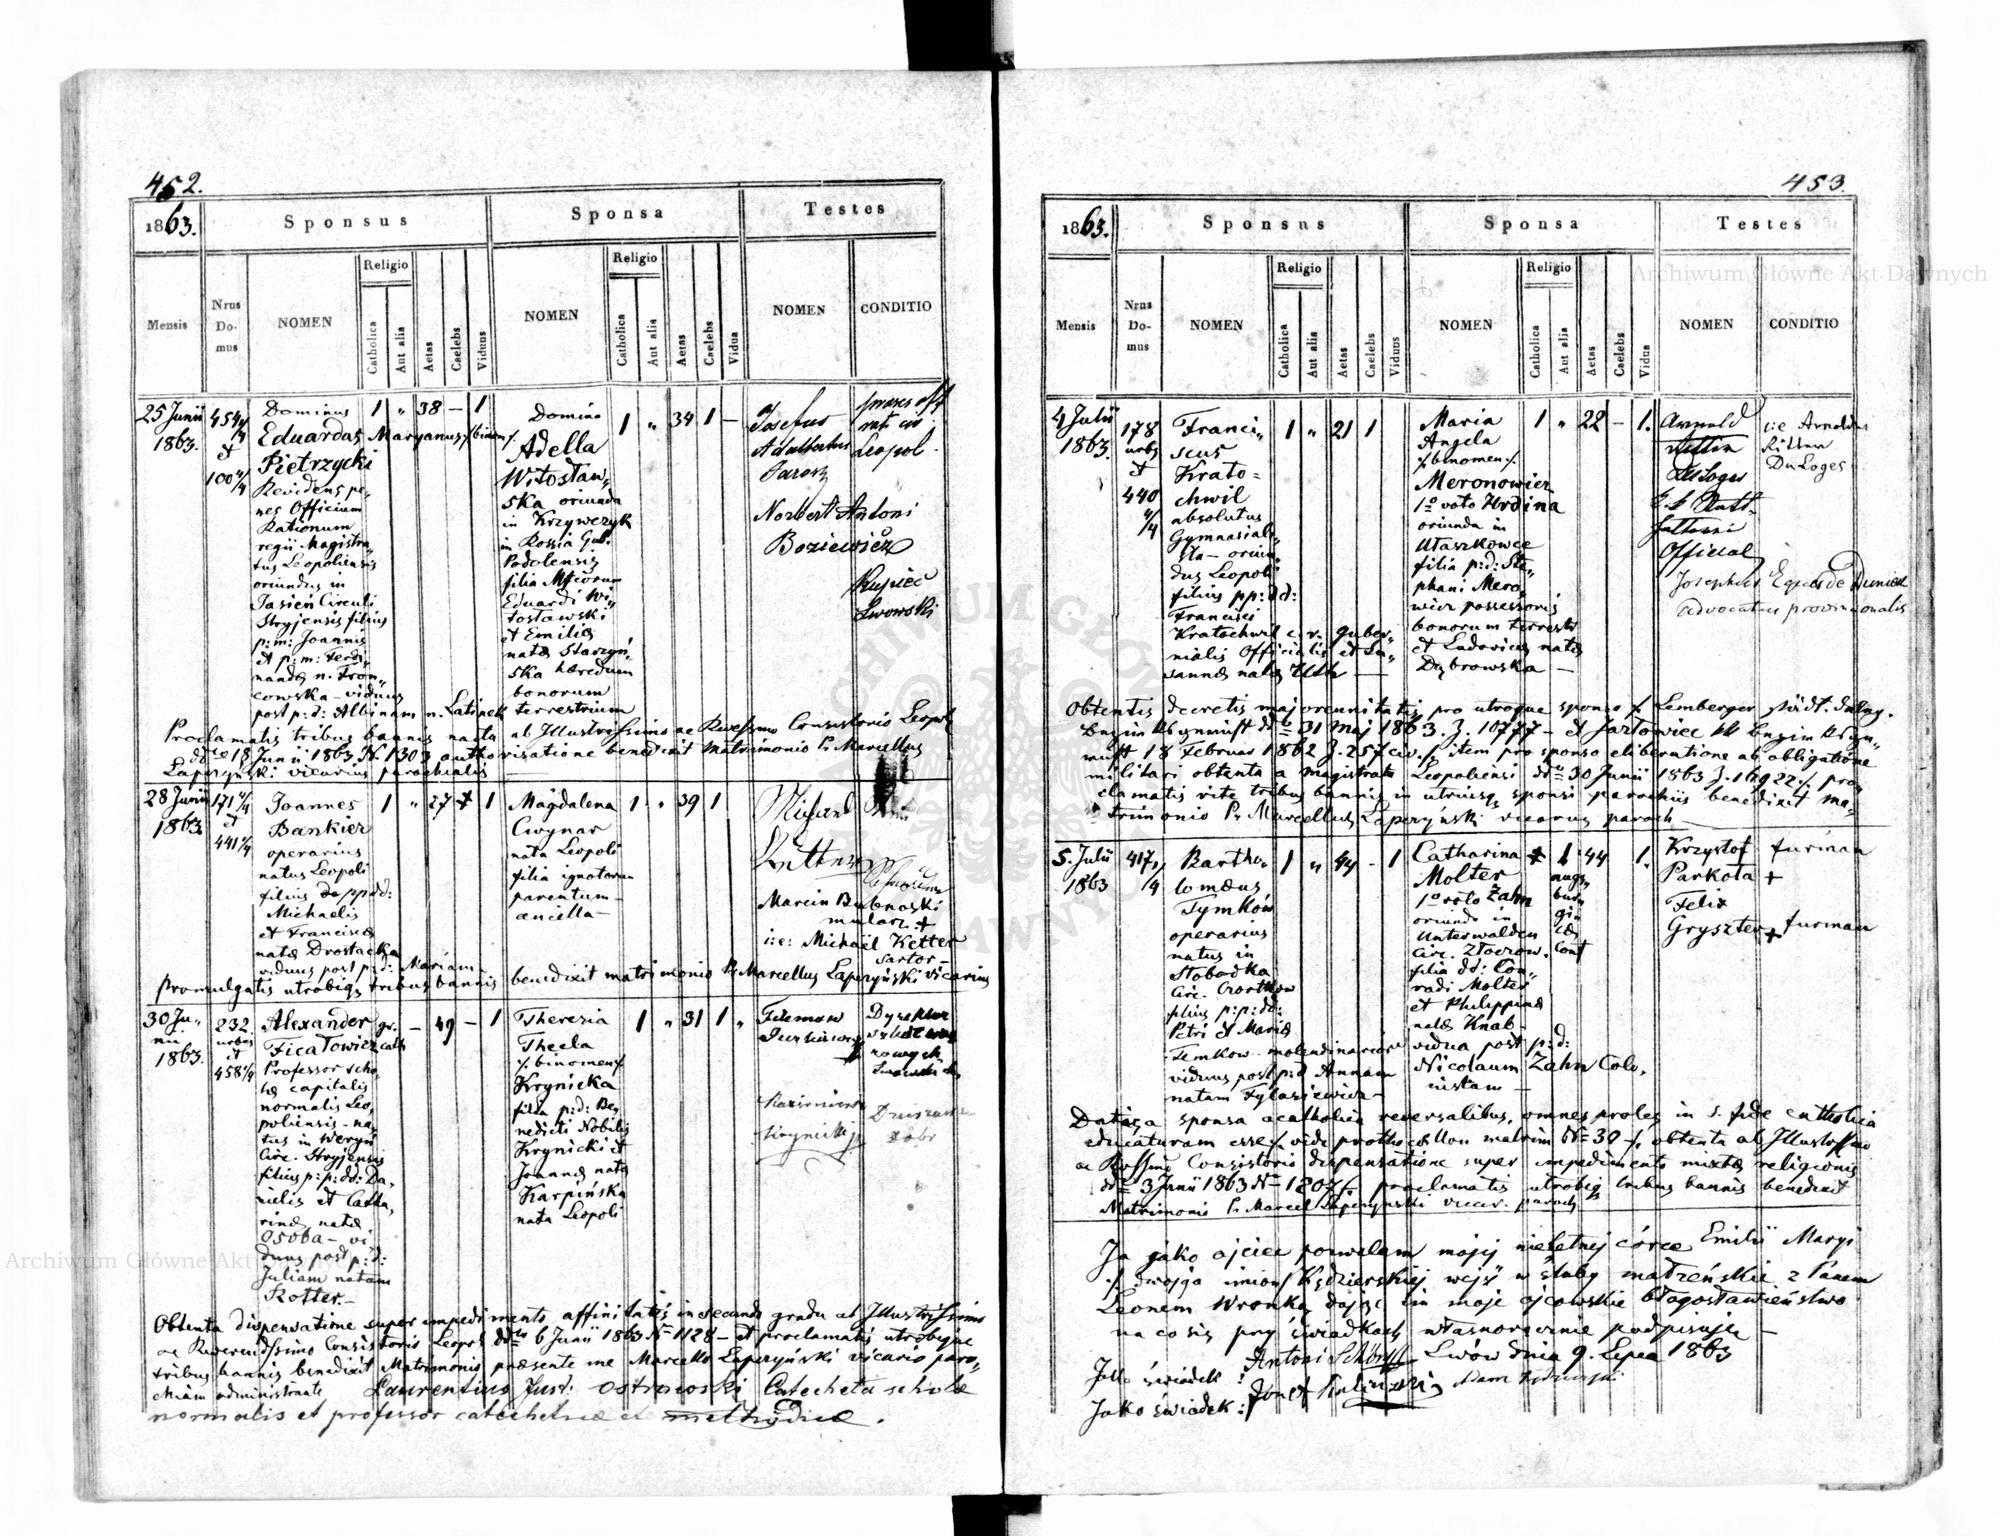 452.
1863.
Sponsus
Sponsa
Testes
Mensis
Nrus Domus
NOMEN
Religio
Catholica
Aut alia
Aetas
Caelebs
Viduus
NOMEN
Religio
Catholica
Aut alia
Aetas
Caelebs
Vidua
NOMEN
CONDITIO
25 Junii
1863.
454 4/4
et
100 4/4
Dominus
Eduardus Maryanus /:binom:/
Pietrzycki
Revidens pe-
nes Officium
Rationum
regii Magistra-
tus Leopoliensis
oriundus in
Jasień Circuli
Stryjensis filius
p: m: Joannis
et p: m: Ferdi-
nandæ n. Fron-
cowska - viduus
post p: d: Albinam n. Latinek
1 " 38 - 1
Domina
Adella
Witosław-
ska oriunda
in Krzywczyk
in Rossia Gub.
Podolensis
filia
Eduardi Wi-
tosławski
et Emiliæ
natæ Starzyń-
ska hæredum
bonorum
terrestrium
1 " 34 1 -
Josephus
Adalbertus
Jarosz
Leopol.
Norbert Antoni
Boziewicz
Kupiec
Lwowski
Proclamatis tribus bannis nacta ab Illustrissimo ac Rvessmo Consistorio Leopol
ddto 18 Junii 1863 N 1303 authorisatione benedixit Matrimonio Pr Marcellus
Łapczyński vicarius parochialis
28 Junii
1863
171 4/4
et
441 4/4
Joannes
Bankier
operarius
natus Leopoli
filius pp: dd:
Michaelis
et Franciscæ
natæ Drostacka
viduus post p: d: Mariam
1 " 27 + 1
Magdalena
Cwynar
nata Leopoli
filia ignotorum
parentum -
ancilla -
1 " 39 1
Michael
Marcin Bubnoski
mularz +
i: e: Michaël Ketter
Sartor -
Promulgatis utrobiq tribus bannis benedixit matrimonio Pr Marcellus Łapczyński vicarius
30 Ju-
nii
1863.
232
urbis
et
458 4/4
Alexander
Ficałowicz
Professor scho-
læ capitalis
normalis Leo-
poliensis - na-
tus in Weryń
Circ. Stryjensis
filius p: p: dd: Da-
nielis et Catha-
rinæ natæ
Osoba - vi-
duus post p: d:
Juliam natam
Kotter -
gr. cath
- 49 - 1
Theresia
Thecla
/: binomen :/
Krynicka
filia p: d: Be-
nedicti Nobilis
Krynicki et
Joannæ natæ
Karpińska
nata Leopoli
1 " 31 1 "
Dyrektor
Kazimierz
Krynicki
Dzierżawca
dóbr
Obtenta dispensatione super impedimento affinitatis in secundo gradu ab Illustrissimo
ac Reverendissimo Consistorio Leopol ddto 6 Junii 1863 N 1128 - et proclamatis utrobique
tribus bannis benedixit Matrimonio præsente me Marcello Łapczyński vicario paro-
chiam administrante Laurentius Just: Ostrowski Catecheta scholæ
normalis et professor catecheticæ et methodicæ.
453.
1863.
Sponsus
Sponsa
Testes
Mensis
Nrus Domus
NOMEN
Religio
Catholica
Aut alia
Aetas
Caelebs
Viduus
NOMEN
Religio
Catholica
Aut alia
Aetas
Caelebs
Vidua
NOMEN
CONDITIO
4 Julii
1863.
178
urbs
et
440
4/4
Franci-
scus
Krato-
chwil
absolutus
Gymnasiali-
sta - oriun-
dus Leopoli
filius pp: dd:
Francisci
Kratochwil c. r. guber-
nialis Officialis et Su-
sannæ natæ Uth -
1 " 21 1
Maria
Angela
/: binomen :/
Meronowicz
1º voto Hrdina
oriunda in
Ułaszkowce
filia p: d: Ste-
phani Mero-
wicz possessoris
bonorum terrestr
et Ludovicæ natæ
Dąbrowska -
1 " 22 - 1.
Arnold
Ritter
DuLoges
Official
i: e: Arnoldus
Ritter
DuLoges
Josephus Eques de
advocatus provincionalis
Obtentis decretis majorennitatis pro utroque sponso /: Lemberger städt. deleg.
ddto 31 Maj 1863. Z. 10777 - et Jazlowiec kk Bezirk
18 Februar 1862 Z. 257 civ. :/ item pro sponso eliberatione ab obligatione
militari obtenta a magistratu Leopoliensi ddto 30 Junii 1863 Z. 16922 :/ pro-
clamatis rite tribus bannis in utriusq sponsi parochiis benedixit ma-
trimonio Pr Marcellus Łapczyński vicarius paroch
5. Julii
1863
417
4/4
Bartho-
lomæus
Tymków
operarius
natus in
Słobodka
Circ. Czortkow
filius p: p: dd:
Petri et Mariæ
Temkow molendinariorum
viduus post p: d Annam
natam Fylasiewicz -
1 " 44 - 1
Catharina
Molter
1º voto Zahn
oriunda in
Unterwalden
Circ. Złoczow.
filia dd: Con-
radi Molter
et Philippinæ
natæ Knab -
vidua post p: d:
Nicolaum Zahn Colo-
nistam -
+ 1 44 1.
augs-
bur-
gi-
cæ
conf
Krzysztof
Parkota +
furman
Felix
Gryszter +
furman
Datis a sponsa acatholica reversalibus, omnes proles in s. fide catholica
educaturam esse /. vide prothocollon matrim N 30 ./. obtenta ab Illustrissimo
ac Rssmo Consistorio dispensatione super impedimento mixtæ religionis
ddto 3 Junii 1863 N 1207 /. proclamatis utrobiq tribus bannis benedixit
Matrimonio Pr Marcel Łapczyński vicar. paroch
Ja jako ojciec pozwalam mojej nieletnej córce Emilii Maryi
/: dwojga imion :/ Kędzierskiej wejść w śluby małżeńskie z Panem
Leonem Wronka dając im moje ojcowskie błogosławieństwo
na co się przy świadkach własnoręcznie podpisuję -
Lwów dnia 9. Lipca 1863
Jako świadek: Antoni
Jako świadek: Józef